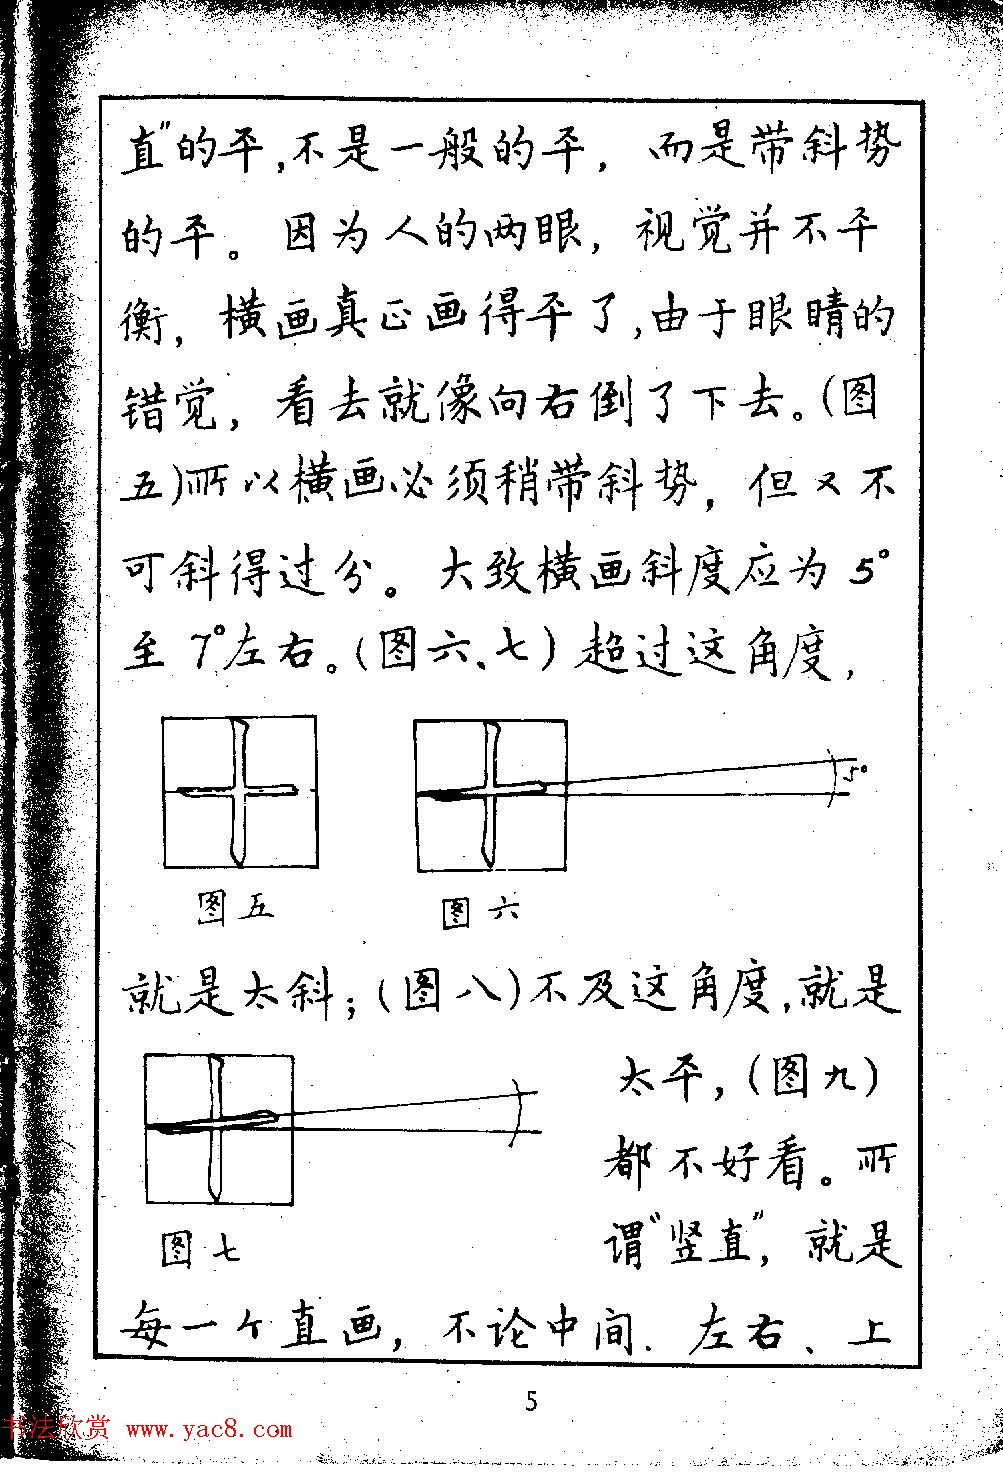 直”的平,不是一般的平，而是带斜势
的平。因为人的两眼，视觉并不平
衡，横画真正画得平了,由于眼睛的
错觉，看去就像向右倒了下去。(图
五)所以横画必须稍带斜势，但又不
可斜得过分。大致横画斜度应为5°
至7°左右。(图六、七)超过这角度，
5°
图五
图六
就是太斜；(图八)不及这角度,就是
太平，(图九)
都不好看。所
谓“竖直”，就是
图七
每一个直画，不论中间、左右、上
5
书法欣赏 www.yac8.com